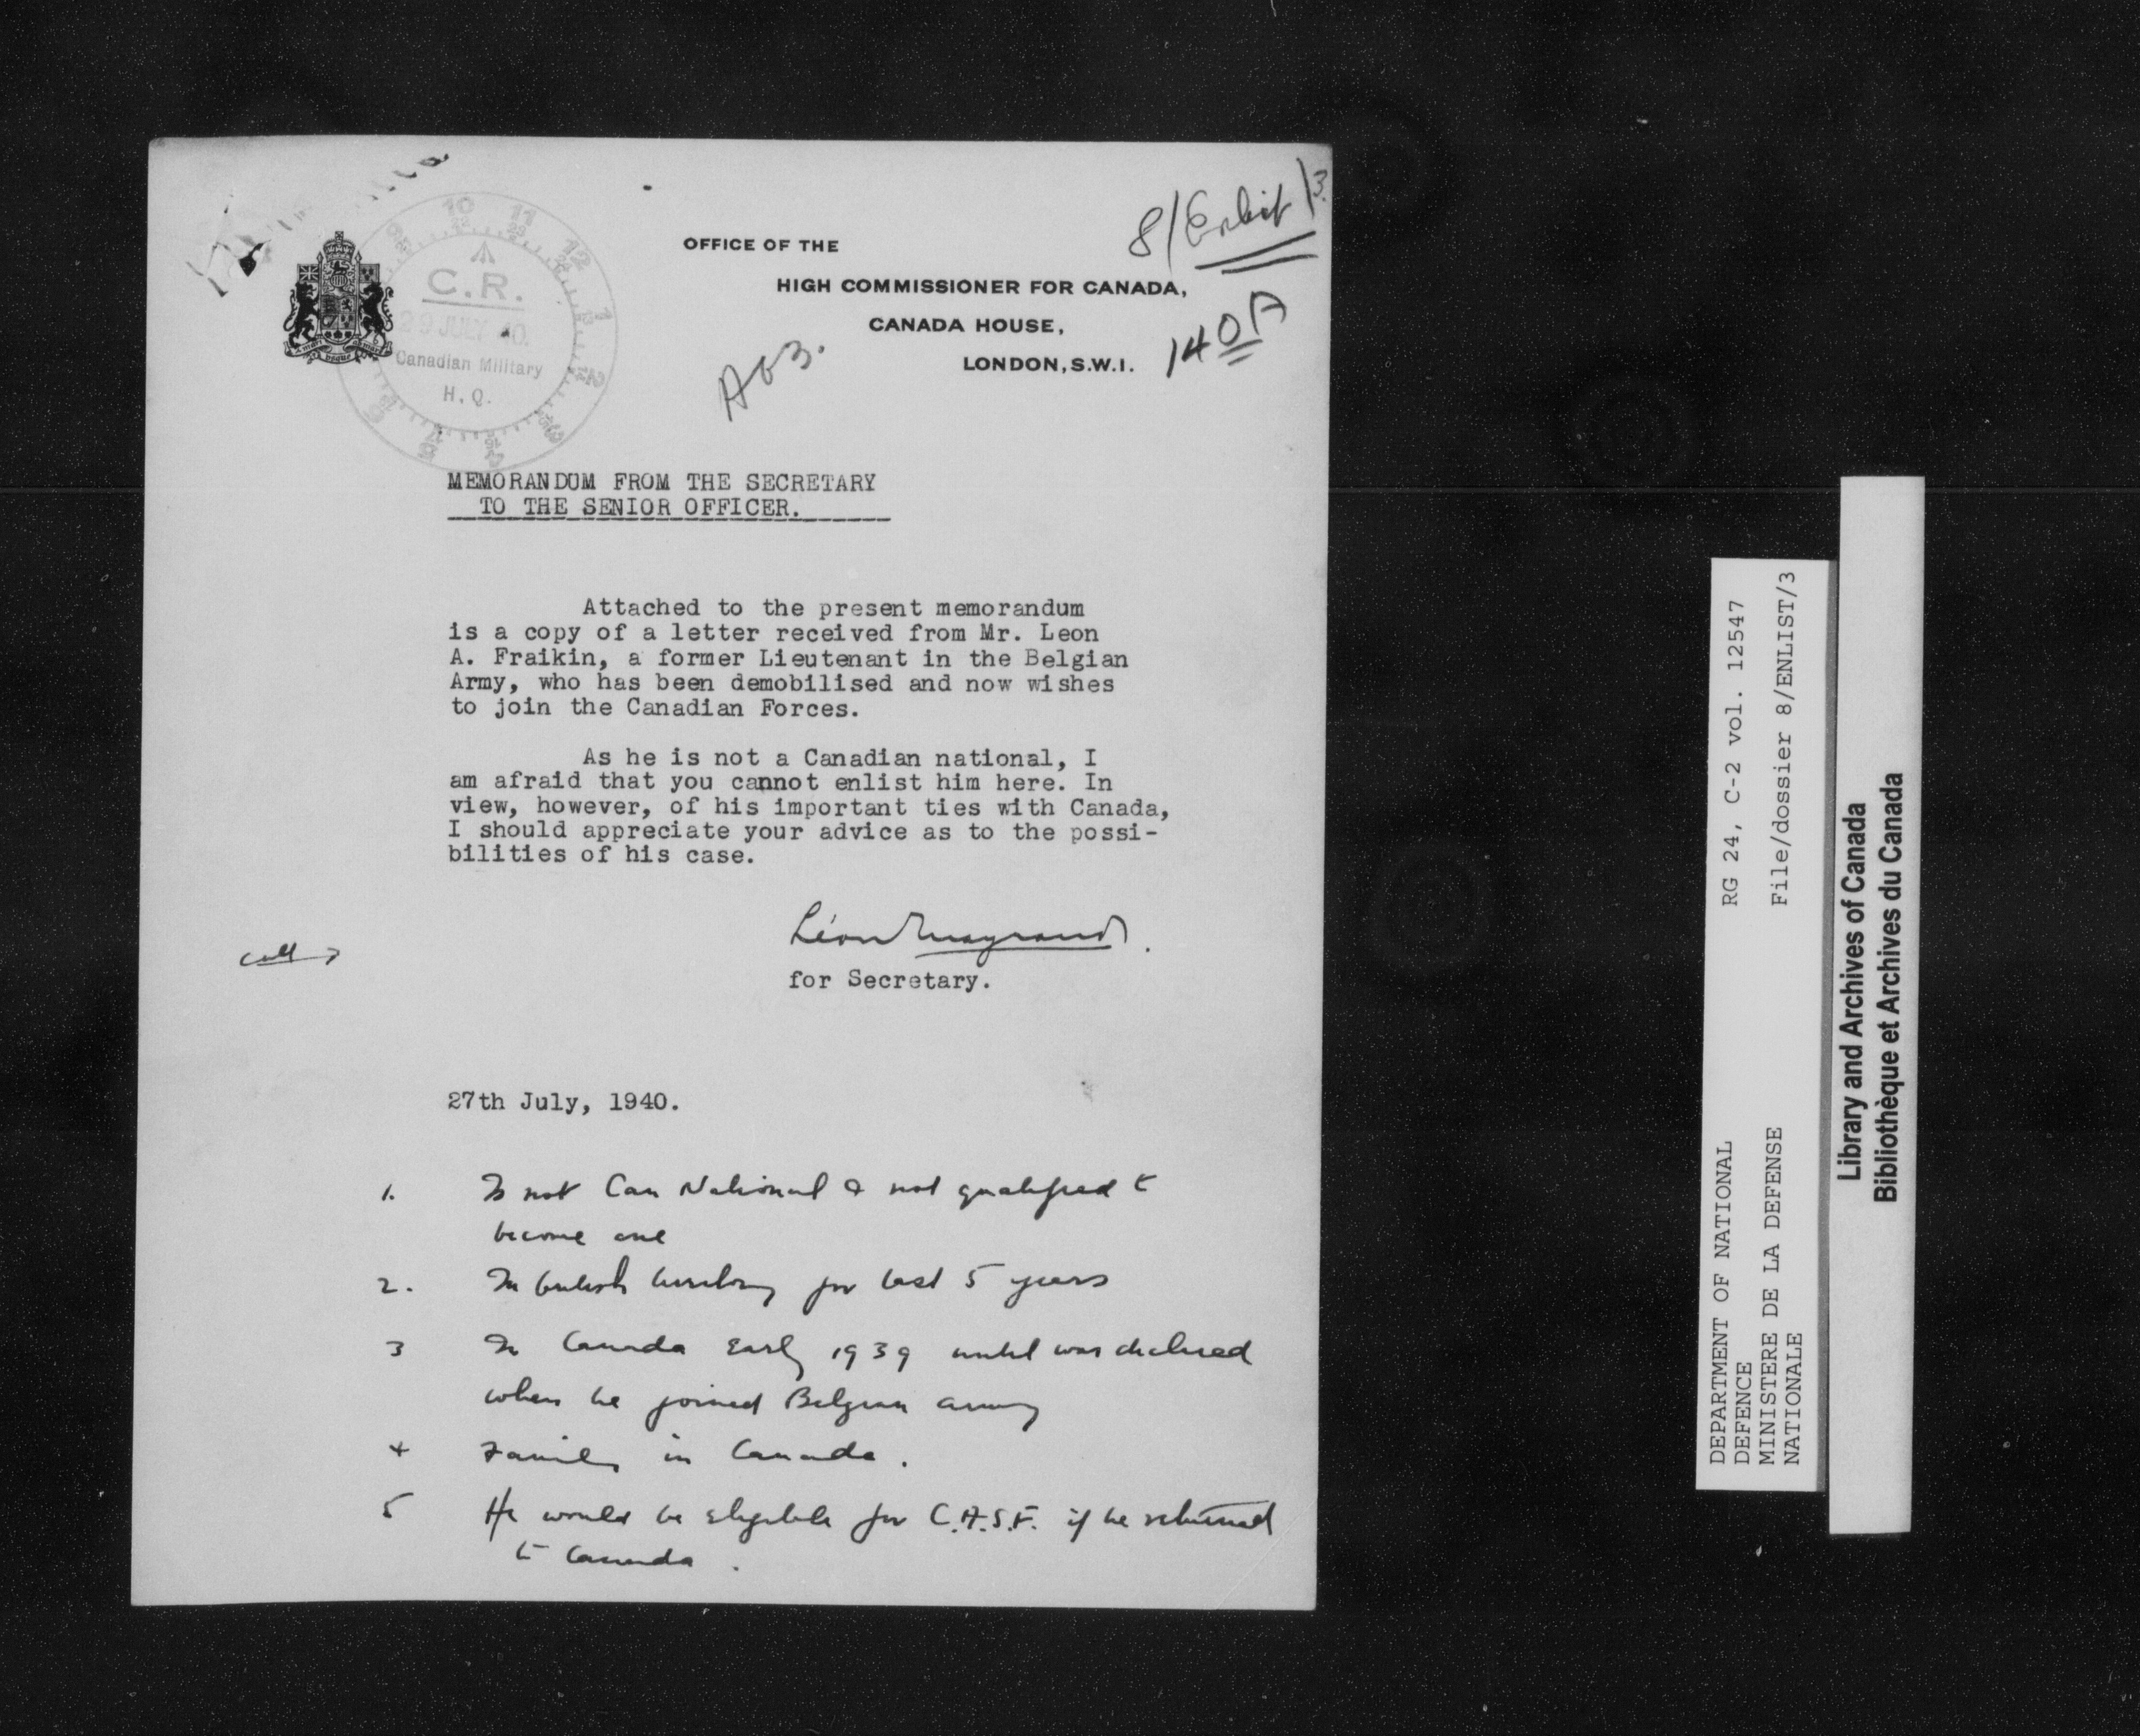 8/Enlist/3
OFFICE OF THE
HIGH COMMISSIONER FOR CANADA,
CANADA HOUSE,
LONDON, S.W.1.
140A
AG3.
C.R.
29 JULY 40.
Canadian Military
H.Q.
MEMORANDUM FROM THE SECRETARY
TO THE SENIOR OFFICER.
Attached to the present memorandum
is a copy of a letter received from Mr. Leon
A. Fraikin, a former Lieutenant in the Belgian
Army, who has been demobilised and now wishes
to join the Canadian Forces.
As he is not a Canadian national, I
am afraid that you cannot enlist him here. In
view, however, of his important ties with Canada,
I should appreciate your advice as to the possi-
bilities of his case.
Léon Mayrand.
for Secretary.
27th July, 1940.
1. Is not Can National & not qualified to
become one
2. In British territory for last 5 years
3 In Canada Early 1939 until war declared
when he joined Belgian army
4 Family in Canada.
5 He would be eligible for C.A.S.F. if he returned
to Canada.
DEPARTMENT OF NATIONAL
DEFENCE
MINISTERE DE LA DEFENSE
NATIONALE
RG 24, C-2 vol. 12547
File/dossier 8/ENLIST/3
Library and Archives of Canada
Bibliothèque et Archives du Canada